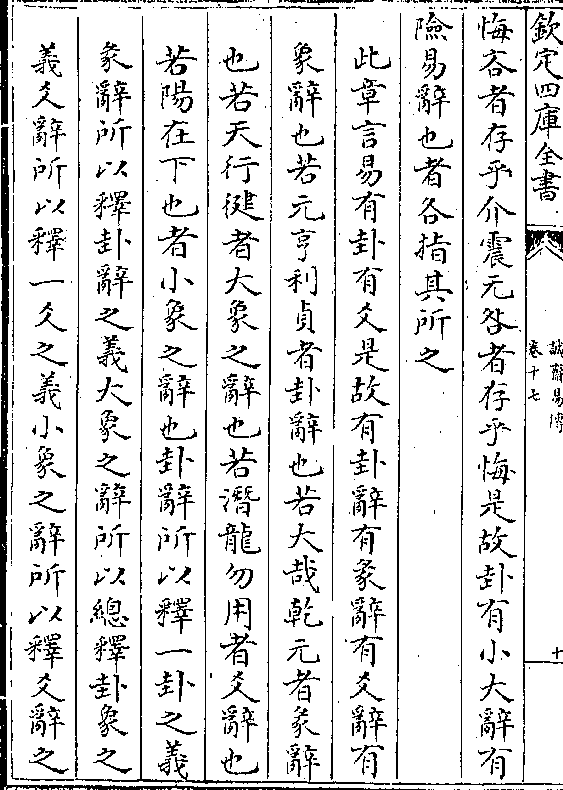 欽定四庫全書
誠齋易傳
卷十七
十
悔吝者存乎介震无咎者存乎悔是故卦有小大辭有
險易辭也者各指其所之
此章言易有卦有爻是故有卦辭有彖辭有爻辭有
象辭也若元亨利貞者卦辭也若大哉乾元者彖辭
也若天行健者大象之辭也若潛龍勿用者爻辭也
若陽在下也者小象之辭也卦辭所以釋一卦之義
彖辭所以釋卦辭之義大象之辭所以總釋卦象之
義爻辭所以釋一爻之義小象之辭所以釋爻辭之